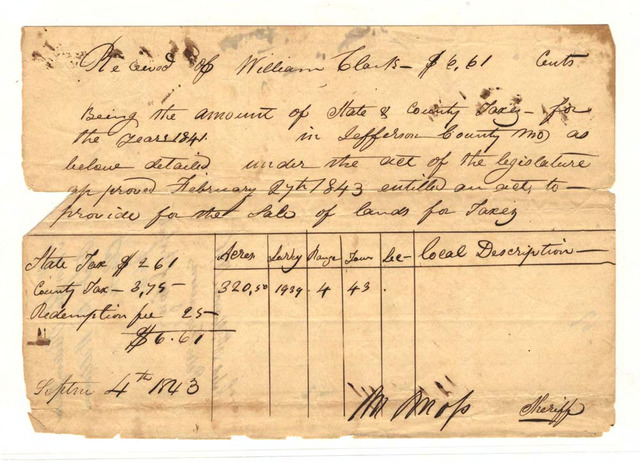 Received of William Clark — $6,61 Cents
Being the amount of State & County Taxes — for
the years 1841 in Jefferson County Mo as
below detailed under the act of the legislature
approved February 27th 1843 entitled an act, to —
provide for the Sale of lands for Taxes
Acres Survy Range Town Sec — Local Description —
State Tax $2.61
County Tax — 3,75 — 320,50 1939 . 4 43 .
Redemption fee 25 —
$6.61
Septm 4th 1843
Sheriff